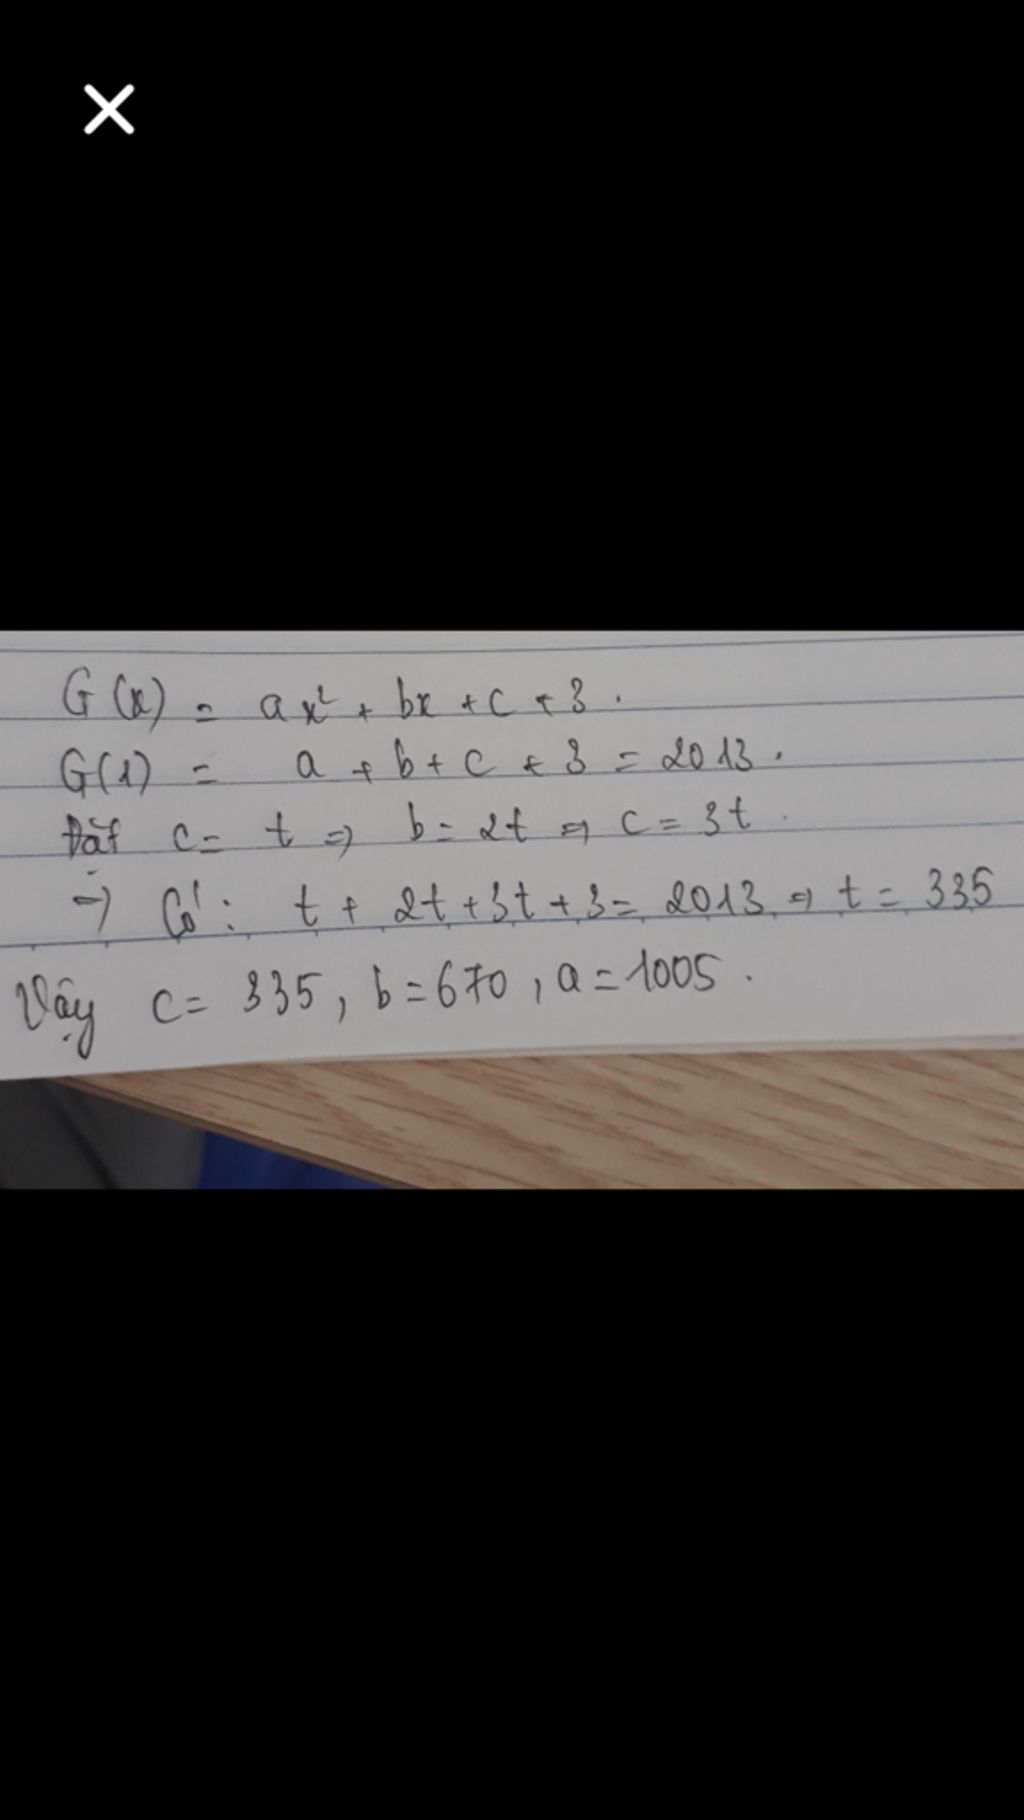 G(x) = ax² + bx + c + 3.
G(1) = a + b + c + 3 = 2013.
Đặt c = t => b = 2t => c = 3t.
=> Có: t + 2t + 3t + 3 = 2013 => t = 335
Vậy c = 335, b = 670, a = 1005.